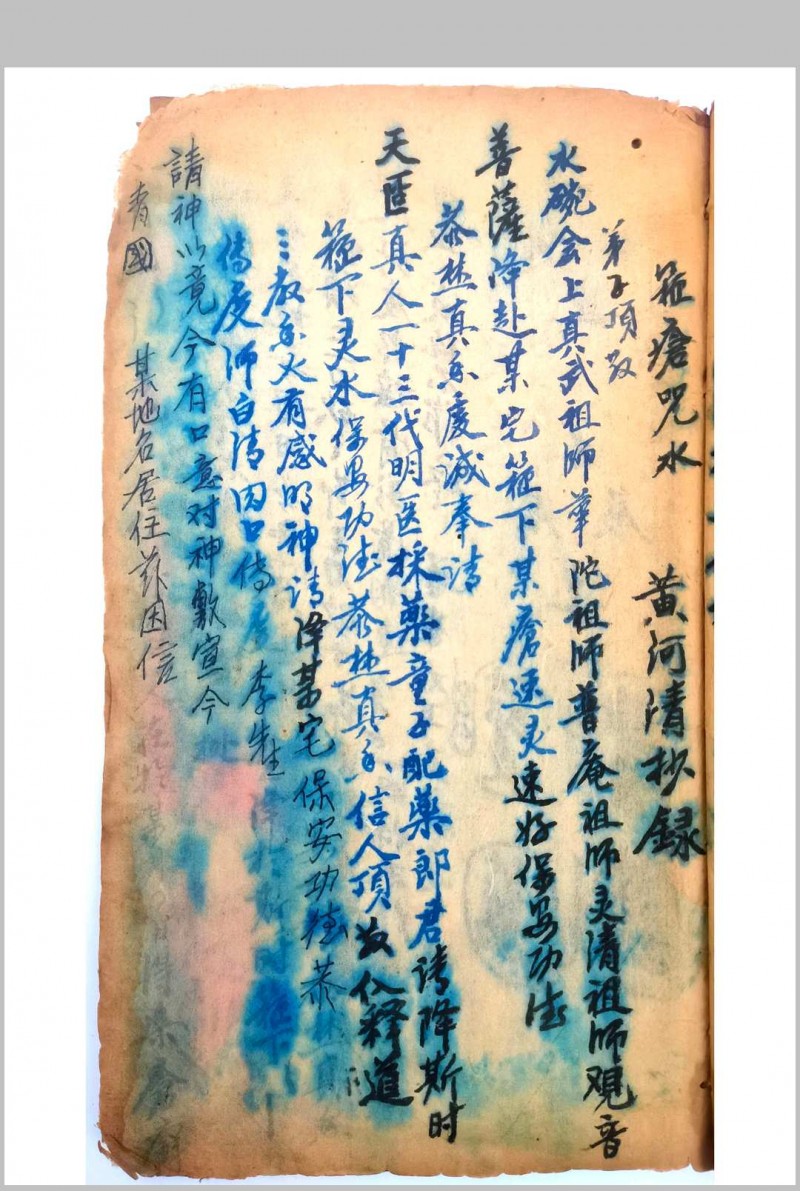 箍瘡咒水 黄河清抄録
弟子頂敬
水碗会上真武祖师華陀祖师普庵祖师灵清祖师观音
菩薩降赴某宅箍下某瘡速灵速好保安功德
恭焚真香虔诚奉请
天医真人一十三代明医採藥童子配藥郎君请降斯时
箍下灵水保安功德恭焚真香信人頂敬仝释道
三教香火有感明神请降某宅保安功德恭
传度师白清因口传度李先生
請神以竟今有口意对神敷宣今
青國 某地名居住兹因信